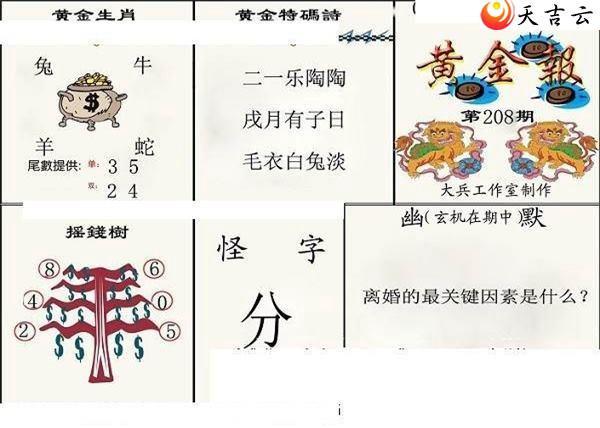 黄金生肖
兔 牛
$
羊 蛇
尾數提供: 单: 3 5
双: 2 4
黄金特碼詩
二一乐陶陶
戌月有子日
毛衣白兔淡
天吉云
黄金報
第208期
大兵工作室制作
摇錢樹
8 6
4 0
2 5
怪 字
分
幽(玄机在期中)默
离婚的最关键因素是什么?